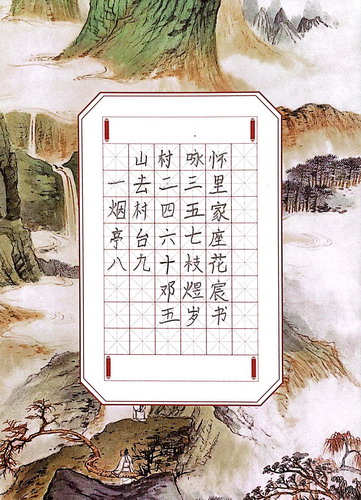 山村咏怀
一去二三里
烟村四五家
亭台六七座
八九十枝花
邓煜宸
五岁书